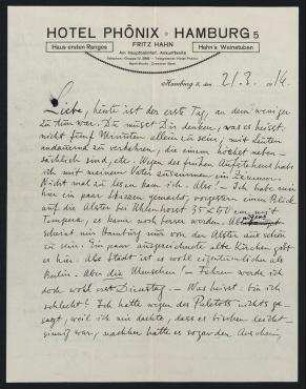 HOTEL PHÖNIX · HAMBURG 5
FRITZ HAHN
Haus ersten Ranges
Am Hauptbahnhof, Ankunftseite
Hahn's Weinstuben
Hamburg 5, den 21/3. 1914
Liebe, heute ist der erste Tag, an dem weniger
zu tun war. Du musst Dir denken, was es heisst,
nicht fünf Minuten allein zu sein, mit Leuten
andauernd zu verkehren, die einem höchst neben-
sächlich sind, etc. Wegen des frühen Aufstehens habe
ich mit meinem Vater zusammen ein Zimmer.
Nicht mal zu lesen kam ich. Also! Ich habe nur
hier ein paar Skizzen gemacht, vorgestern einen Blick
auf die Alster bei Uhlenhorst 35 x 50 cm mit
Tempera, es kann noch herrlich werden. Aber
scheint mir Hamburg nur von der Alster aus schön
zu sein. Ein paar ausgezeichnete alte Kirchen gibt
es hier. Als Stadt ist es wohl eigentümlicher als
Berlin. Aber die Menschen! – Fahren werde ich
doch wohl erst Dienstag. – Was heisst: bin ich
schlecht? Ich hatte wegen des Paletots nichts ge-
sagt, weil ich mir dachte, dass es bisschen leicht-
sinnig war, nachher hatte es sogar den Anschein,